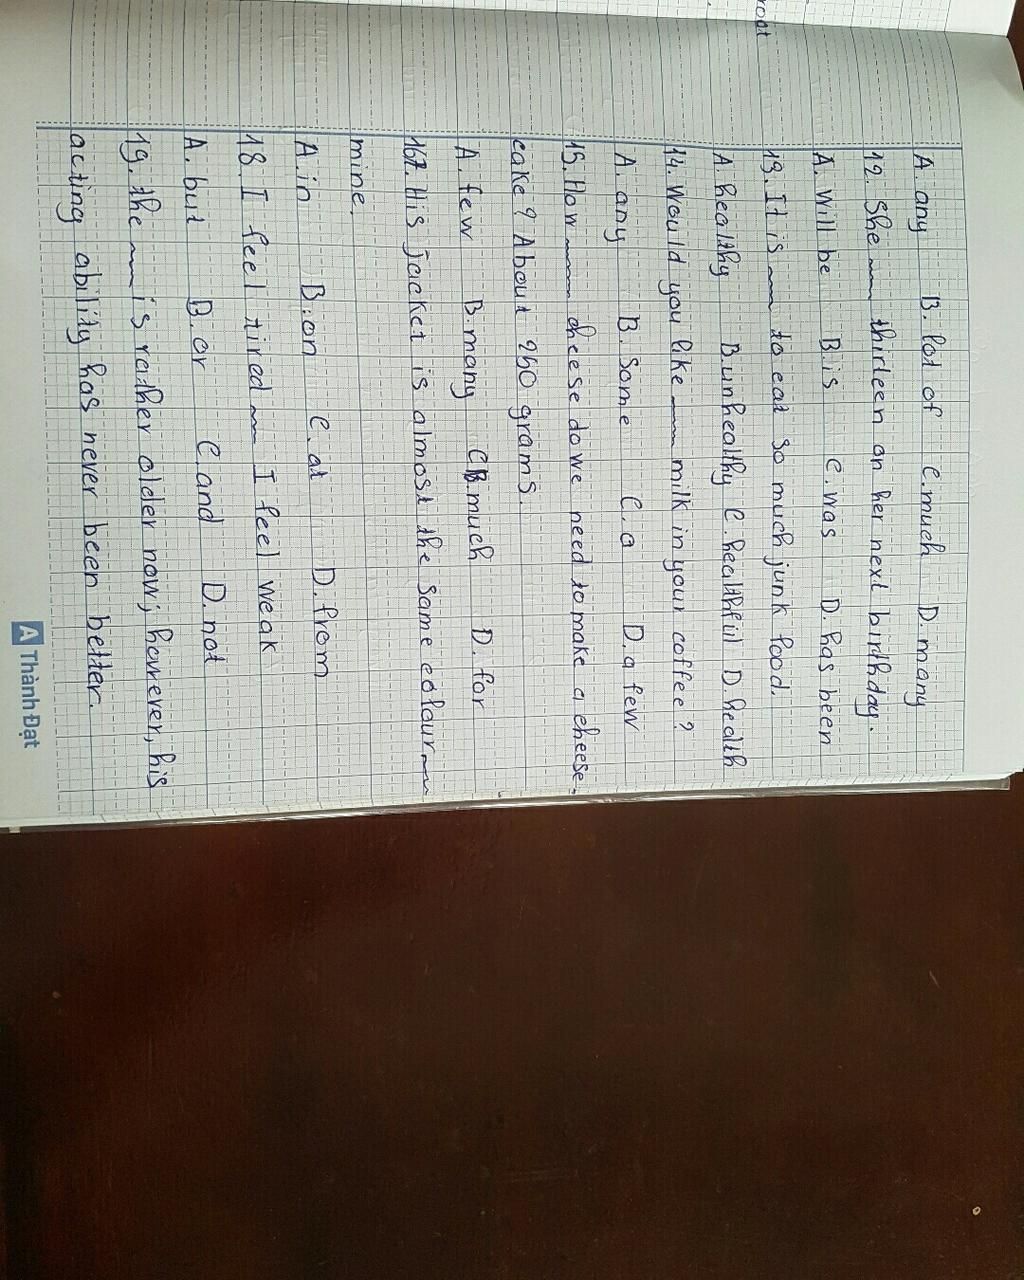 A. any B. lot of C. much D. many
12. She thirteen on her next birthday.
A. will be B. is C. was D. has been
13. It is to eat so much junk food.
A. healthy B. unhealthy C. healthful D. health
14. Would you like milk in your coffee?
A. any B. Some C. a D. a few
15. How cheese do we need to make a cheese-
cake? About 250 grams.
A. few B. many C. much D. for
167. His jacket is almost the same colour
mine.
A. in B. on C. at D. from
18. I feel tired I feel weak
A. but B. or C. and D. not
19. the is rather older now; however, his
acting ability has never been better.
A Thành Đạt